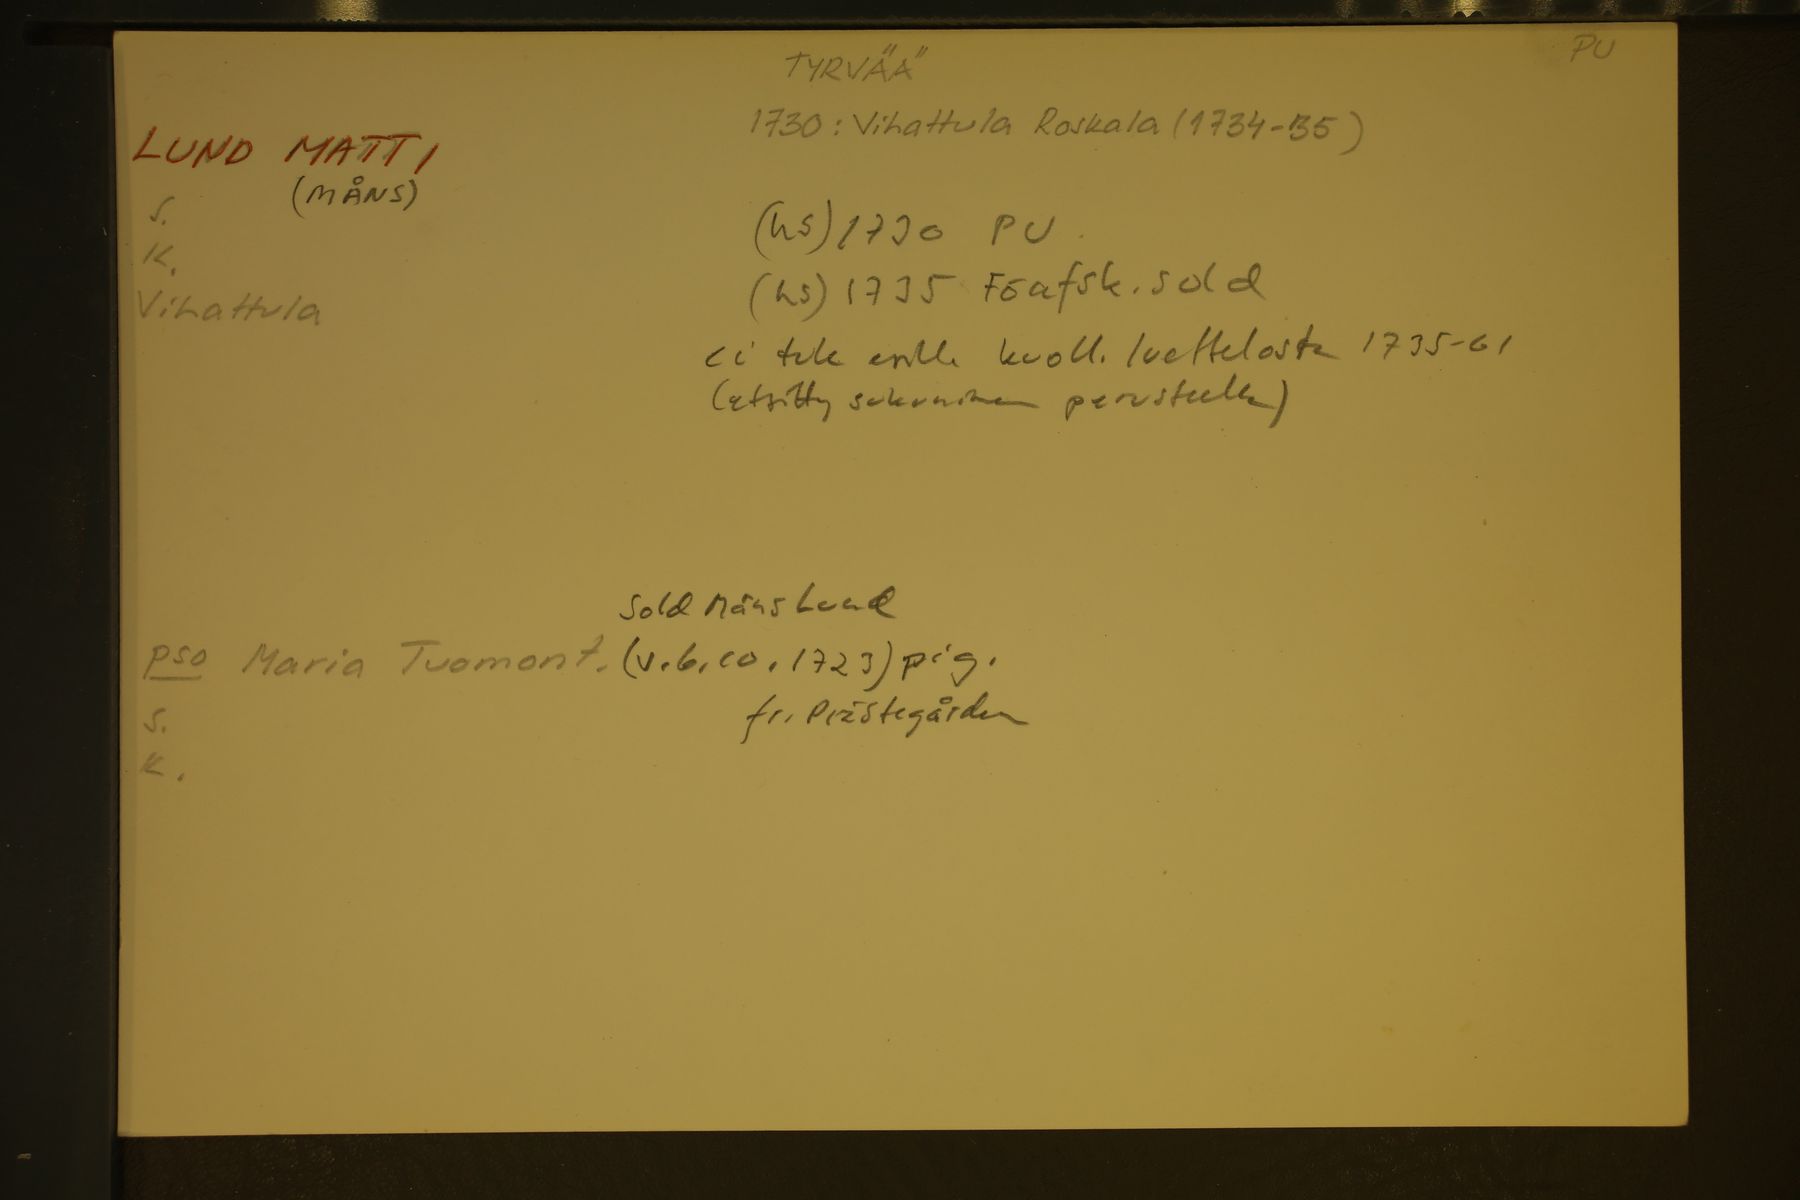 TYRVÄÄ
PU
1730: Vihattula Roskala (1734-35)
LUND MATTI
(MÅNS)
S.
K.
Vihattula
(hs) 1730 PU
(hs) 1735 Föafsk. sold
ei tule esille kuoll. luettelosta 1735-61
(etsitty sukunimen perusteella)
Sold Måns Lund
pso Maria Tuomont. (v.b.co. 1723) pig.
fr. Prästegården
S.
K.